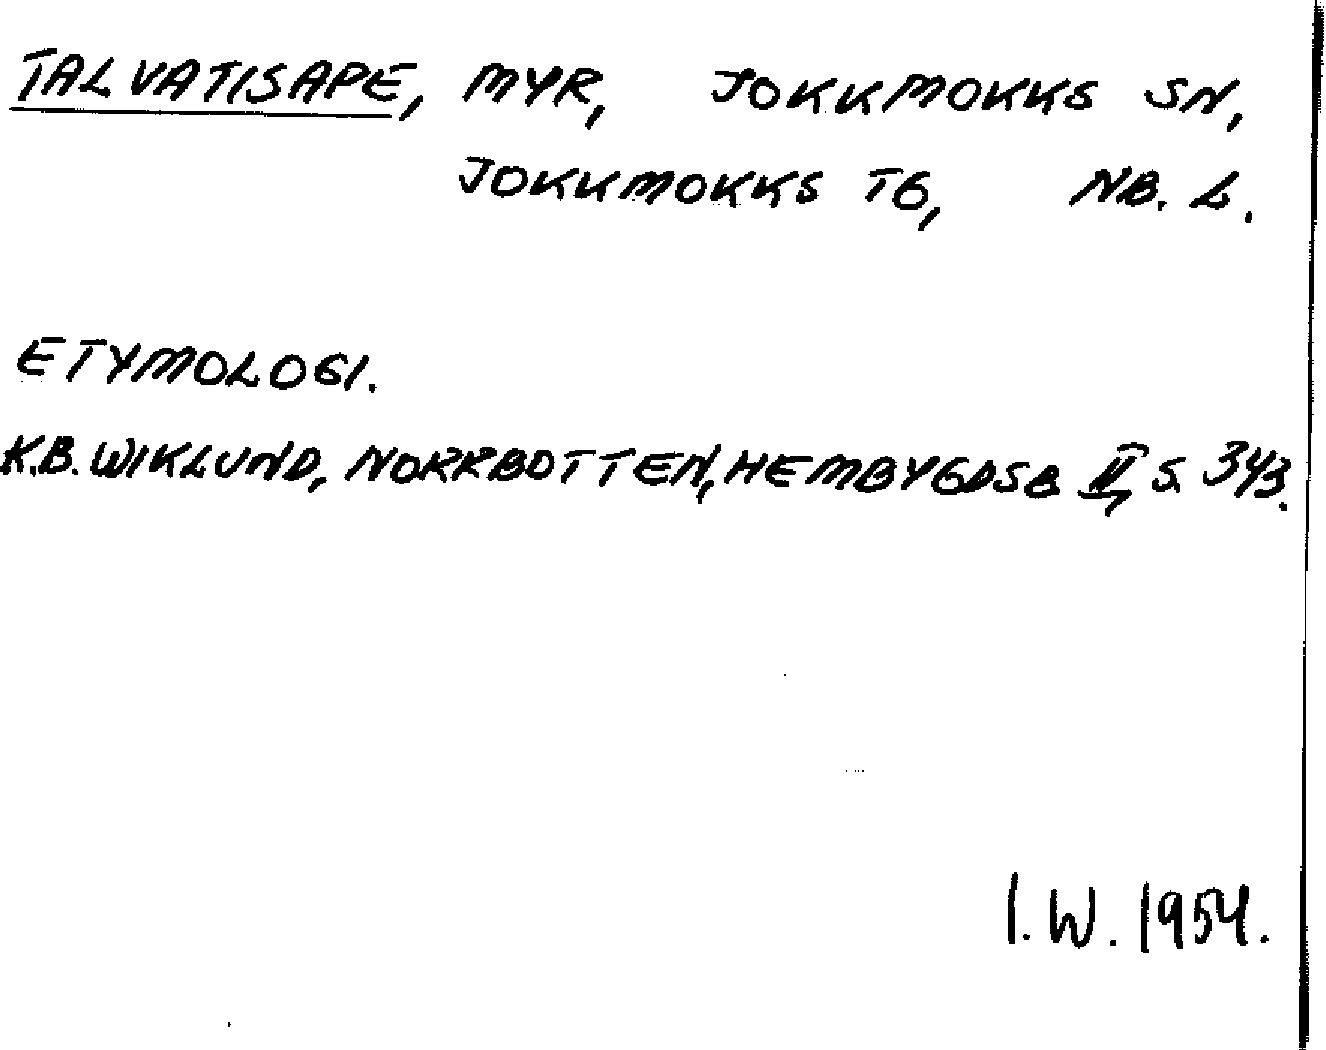 TALVATISAPE, MYR, JOKKMOKKS SN,
JOKKMOKKS TG, NB. L.
ETYMOLOGI.
K.B. WIKLUND, NORRBOTTEN, HEMBYGDSB II, S. 343.
I. W. 1954.